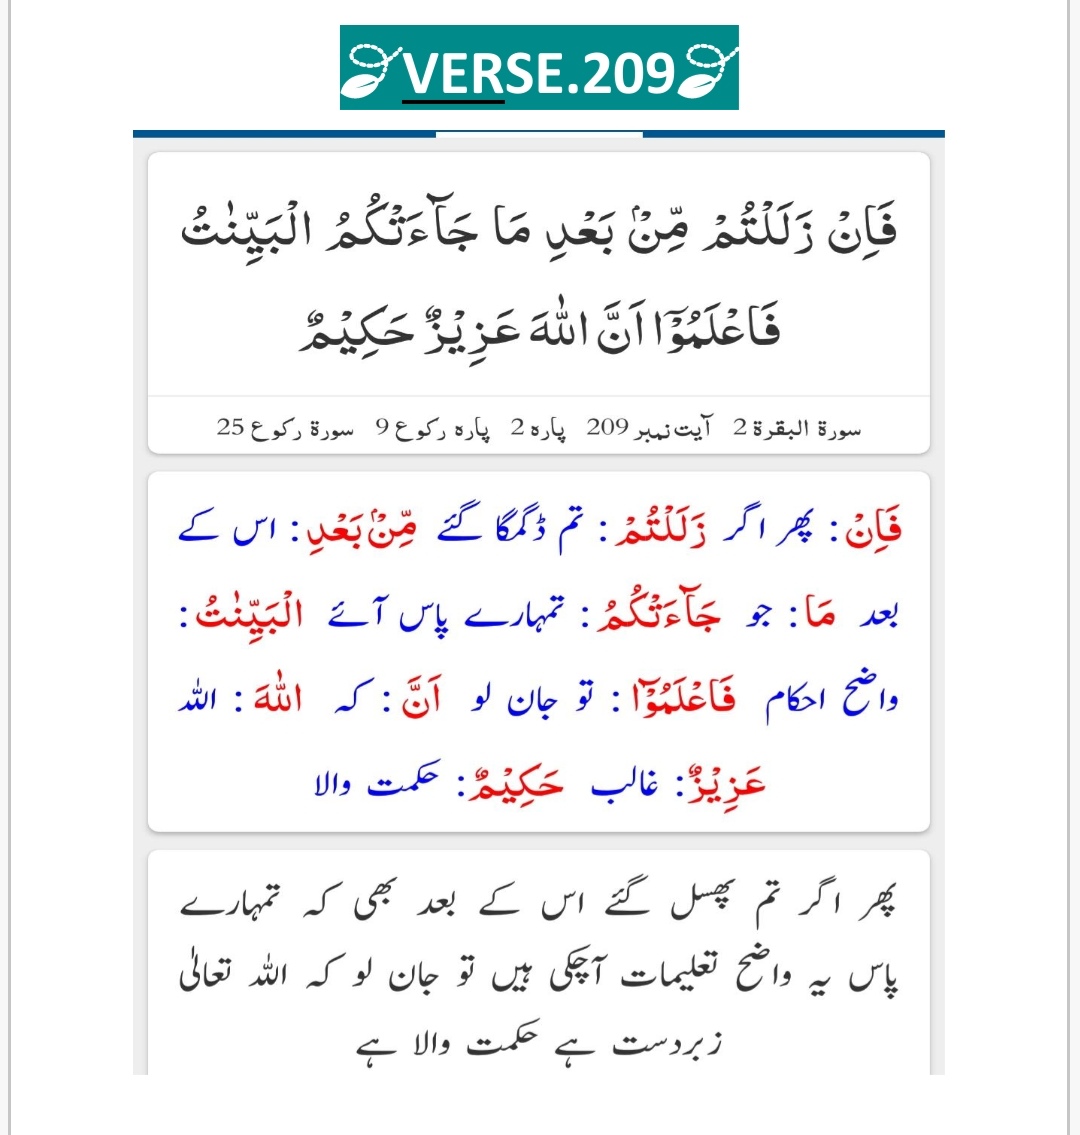 VERSE.209
فَاِنْ زَلَلْتُمْ مِّنْۢ بَعْدِ مَا جَآءَتْكُمُ الْبَيِّنٰتُ
فَاعْلَمُوْٓا اَنَّ اللّٰهَ عَزِيْزٌ حَكِيْمٌ
سورۃ البقرۃ 2 آیت نمبر 209 پارہ 2 پارہ رکوع 9 سورۃ رکوع 25
فَاِنْ : پھر اگر زَلَلْتُمْ : تم ڈگمگا گئے مِّنْۢ بَعْدِ : اس کے
بعد مَا : جو جَآءَتْكُمُ : تمہارے پاس آئے الْبَيِّنٰتُ :
واضح احکام فَاعْلَمُوْٓا : تو جان لو اَنَّ : کہ اللّٰهَ : اللہ
عَزِيْزٌ : غالب حَكِيْمٌ : حکمت والا
پھر اگر تم پھسل گئے اس کے بعد بھی کہ تمہارے
پاس یہ واضح تعلیمات آچکی ہیں تو جان لو کہ اللہ تعالیٰ
زبردست ہے حکمت والا ہے